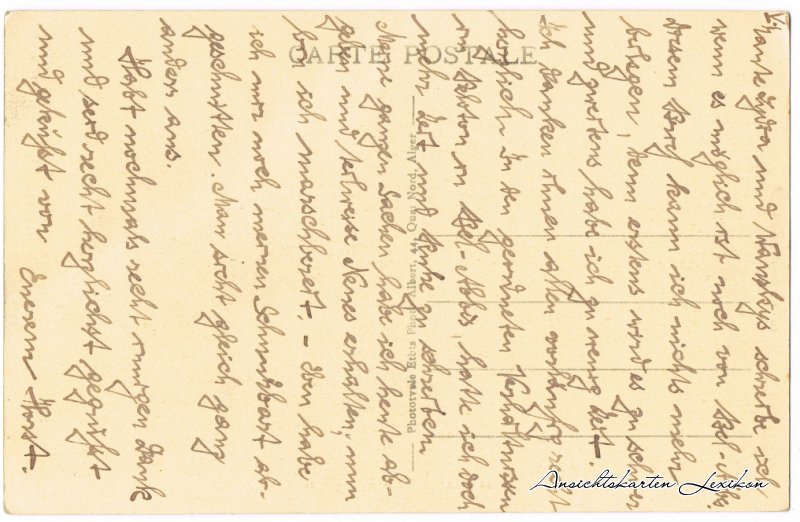 Tante Lydia und Wanskys schreibe ich
wenn es möglich ist noch von Bel-Abbès
diesem Brief kann ich nichts mehr
beilegen, denn erstens wird es zu schwer
und zweitens habe ich zu wenig Zeit.
Ich danke ihnen allen vorläufig recht
herzlich. In den geordneten Verhältnissen
in Bel-Abbès, hatte ich doch
mehr Zeit und Ruhe zu schreiben.
Meine ganzen Sachen habe ich heute ab-
geben und teilweise Neues erhalten, nun
bin ich marschbereit. - Eben habe
ich mir noch meinen Schnurbart ab-
geschnitten. Man sieht gleich ganz
anders aus.
Habt nochmals recht innigen Dank
und seid recht herzlichst gegrüßt
und geküßt von
Eurem Horst.
CARTE POSTALE
Phototypie Etbts Photo Albert, 44, Quai Nord, Alger
Ansichtskarten Lexikon